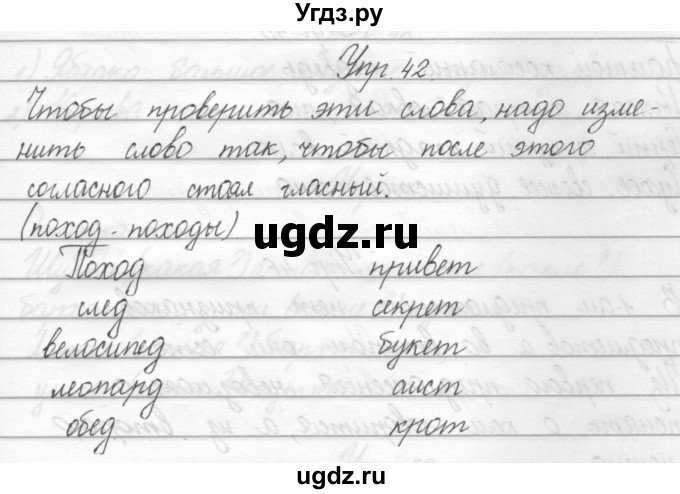 Угдз.ру
Упр. 42.
Чтобы проверить эти слова, надо изме-
нить слово так, чтобы после этого
согласного стоял гласный.
(поход - походы)
ugdz.ru
Поход привет
след секрет
велосипед букет
леопард аист
обед крот
ugdz.ru